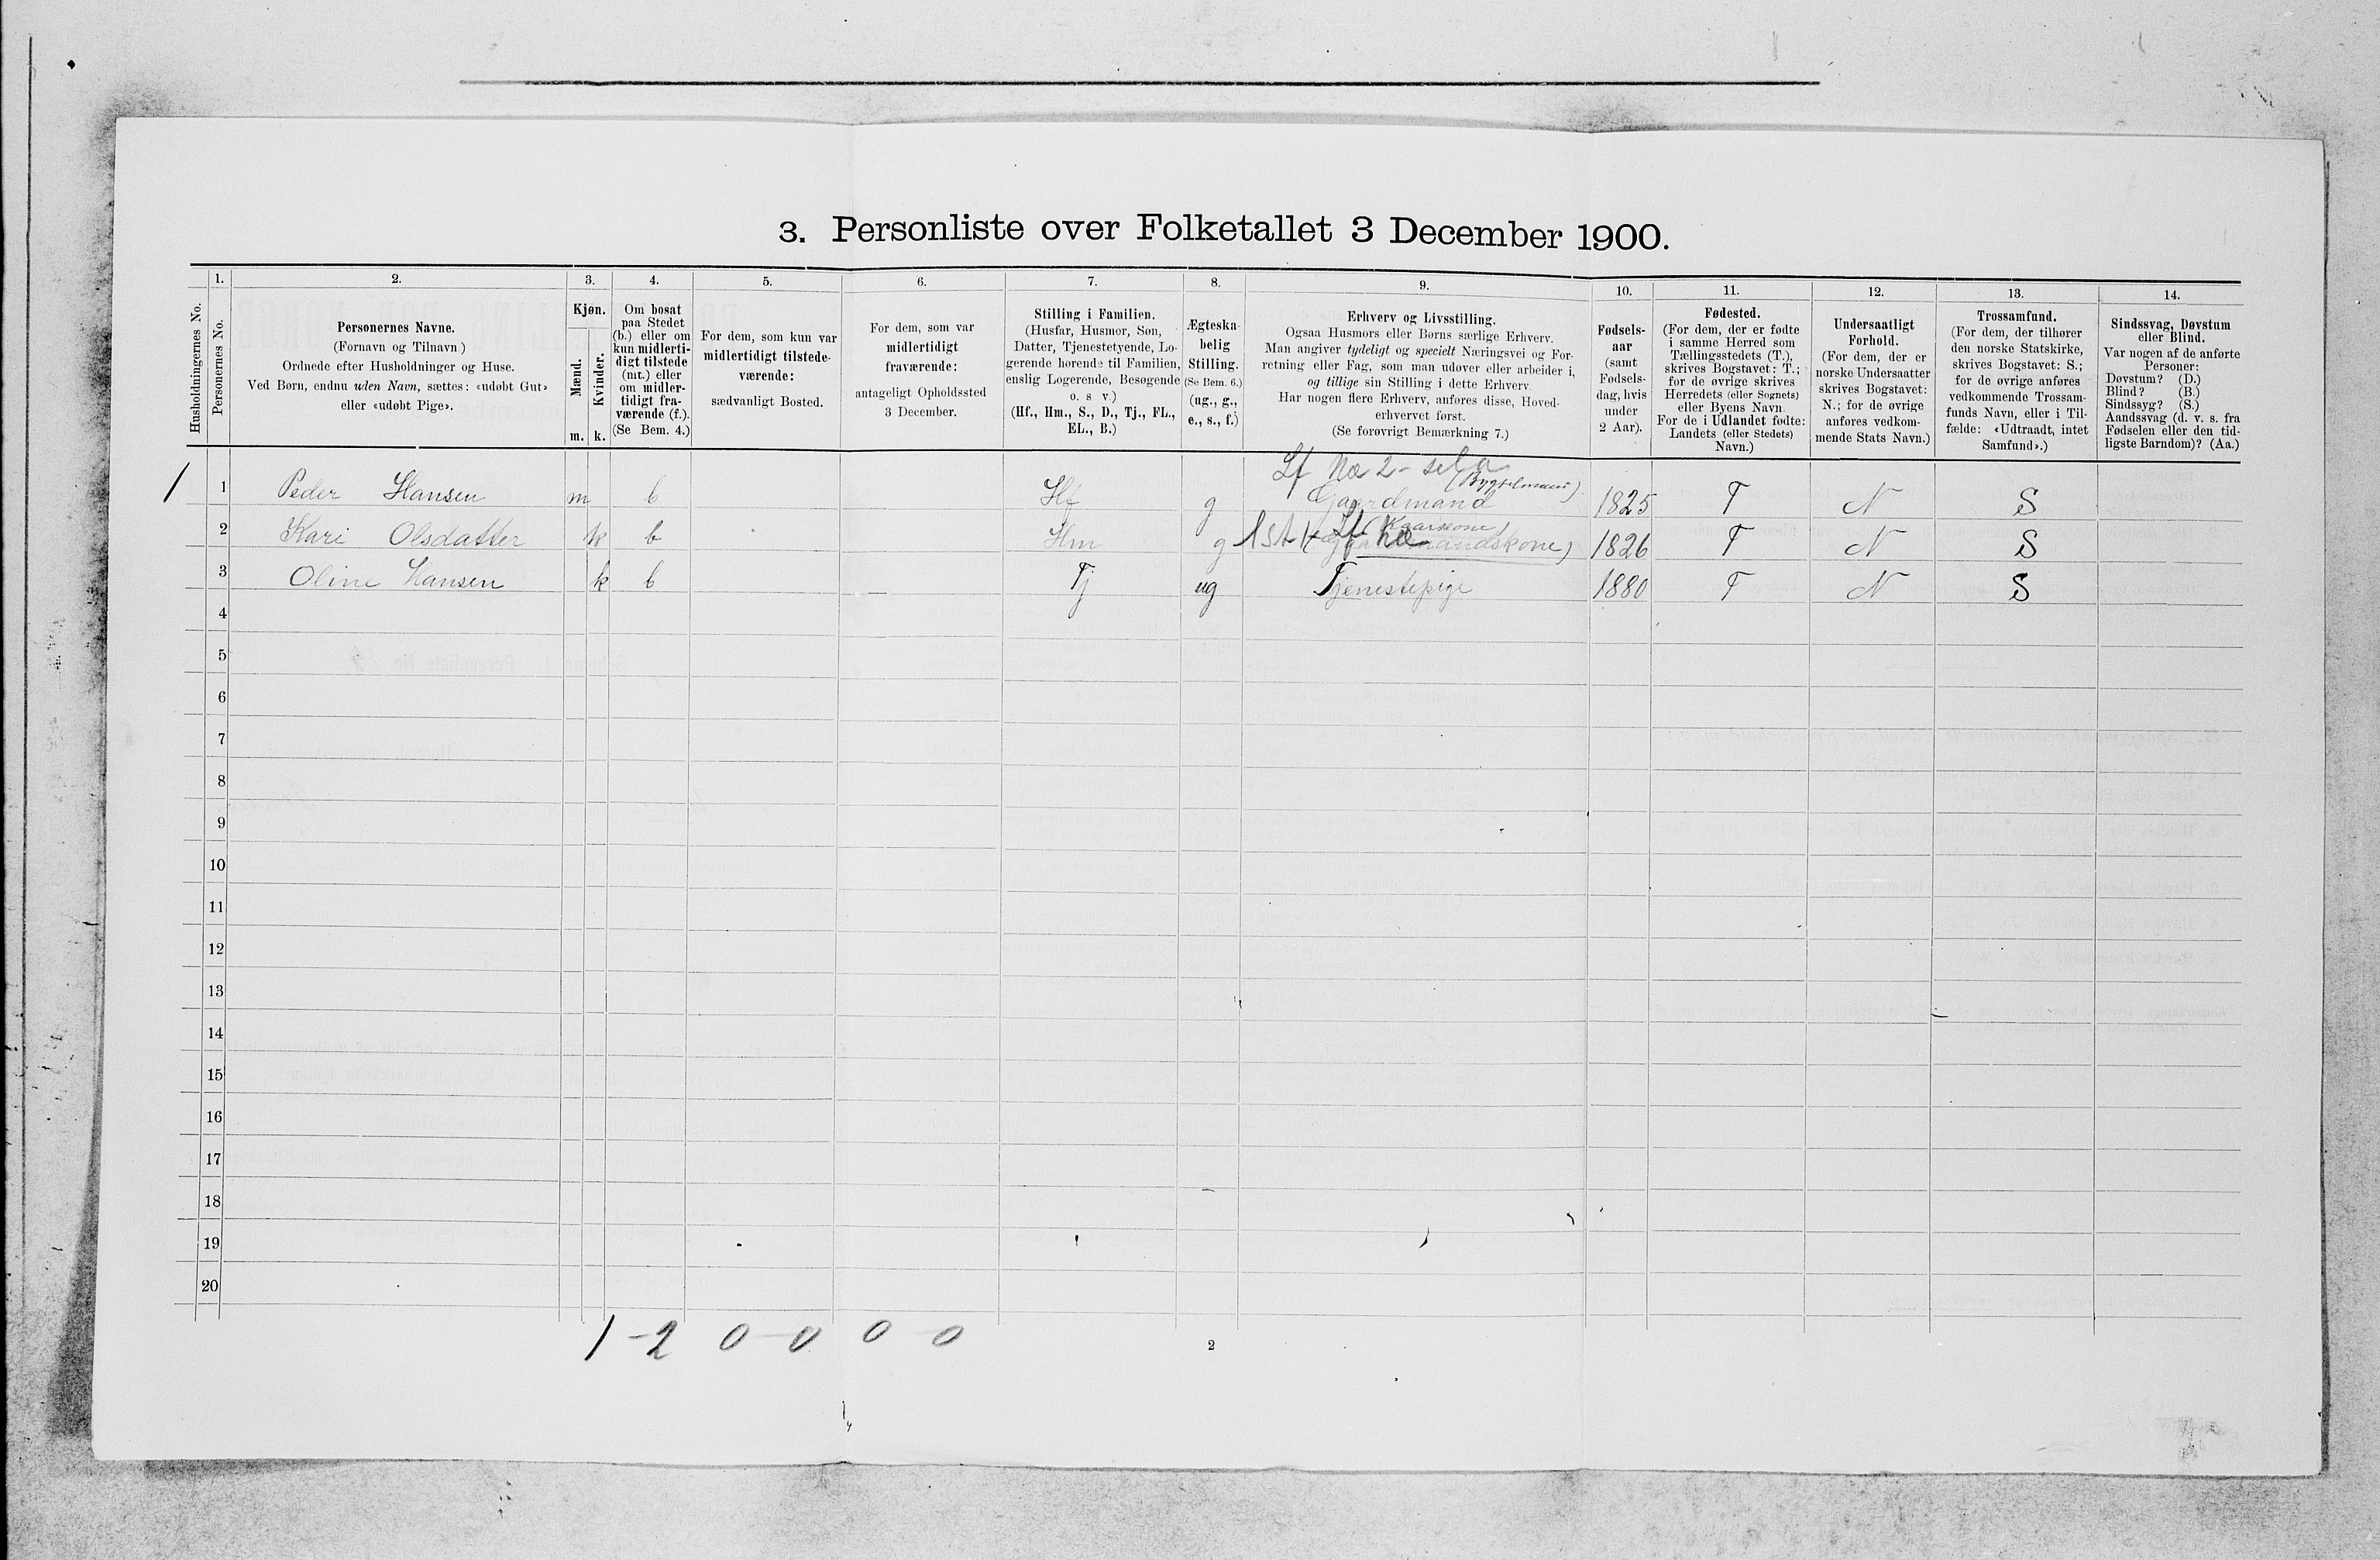 3. Personliste over Folketallet 3 December 1900.
Husholdningernes No.
1.
Personernes No.
2.
Personernes Navne.
(Fornavn og Tilnavn.)
Ordnede efter Husholdninger og Huse.
Ved Børn, endnu uden Navn, sættes: «udøbt Gut»
eller «udøbt Pige».
3.
Kjøn.
Mænd.
Kvinder.
m. k.
4.
Om bosat
paa Stedet
(b.) eller om
kun midlerti-
digt tilstede
(mt.) eller
om midler-
tidigt fra-
værende (f.).
(Se Bem. 4.)
5.
For dem, som kun var
midlertidigt tilstede-
værende:
sædvanligt Bosted.
6.
For dem, som var
midlertidigt
fraværende:
antageligt Opholdssted
3 December.
7.
Stilling i Familien.
(Husfar, Husmor, Søn,
Datter, Tjenestetyende, Lo-
gerende hørende til Familien,
enslig Logerende, Besøgende
o. s v.)
(Hf., Hm., S., D., Tj., FL.,
EL., B.)
8.
Ægteska-
belig
Stilling.
(Se Bem. 6.)
(ug., g.,
e., s., f.)
9.
Erhverv og Livsstilling.
Ogsaa Husmors eller Børns særlige Erhverv.
Man angiver tydeligt og specielt Næringsvei og For-
retning eller Fag, som man udøver eller arbeider i,
og tillige sin Stilling i dette Erhverv.
Har nogen flere Erhverv, anføres disse, Hoved-
erhvervet først.
(Se forøvrigt Bemærkning 7.)
10.
Fødsels-
aar
(samt
Fødsels-
dag, hvis
under
2 Aar).
11.
Fødested.
(For dem, der er fødte
i samme Herred som
Tællingsstedets (T.),
skrives Bogstavet: T.;
for de øvrige skrives
Herredets (eller Sognets)
eller Byens Navn.
For de i Udlandet fødte:
Landets (eller Stedets)
Navn.)
12.
Undersaatligt
Forhold.
(For dem, der er
norske Undersaatter
skrives Bogstavet:
N.; for de øvrige
anføres vedkom-
mende Stats Navn.)
13.
Trossamfund.
(For dem, der tilhører
den norske Statskirke,
skrives Bogstavet: S.;
for de øvrige anføres
vedkommende Trossam-
funds Navn, eller i Til-
fælde: «Udtraadt, intet
Samfund».)
14.
Sindssvag, Døvstum
eller Blind.
Var nogen af de anførte
Personer:
Døvstum? (D.)
Blind? (B.)
Sindssyg? (S.)
Aandssvag (d. v. s. fra
Fødselen eller den tid-
ligste Barndom)? (Aa.)
(Bygselmand)
1 1 Peder Hansen m b Hf g Gaardmand 1825 T N S
(Kaarkone)
2 Kari Olsdatter k b Hm g Gaardmandskone) 1826 T N S
3 Oline Hansen k b Tj ug Tjenestepige 1880 T N S
4
5
6
7
8
9
10
11
12
13
14
15
16
17
18
19
20
1-2 0-0 0-0
2